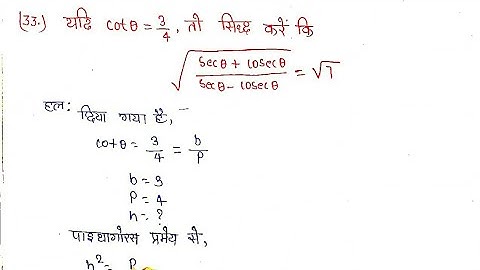 (33.) यदि cotθ = 3/4, तो सिध्द करें कि
√((secθ + cosecθ)/(secθ - cosecθ)) = √7
हल: दिया गया है,
cotθ = 3/4 = b/p
b = 3
P = 4
h = ?
पाइथागोरस प्रमेय से,
h² = P